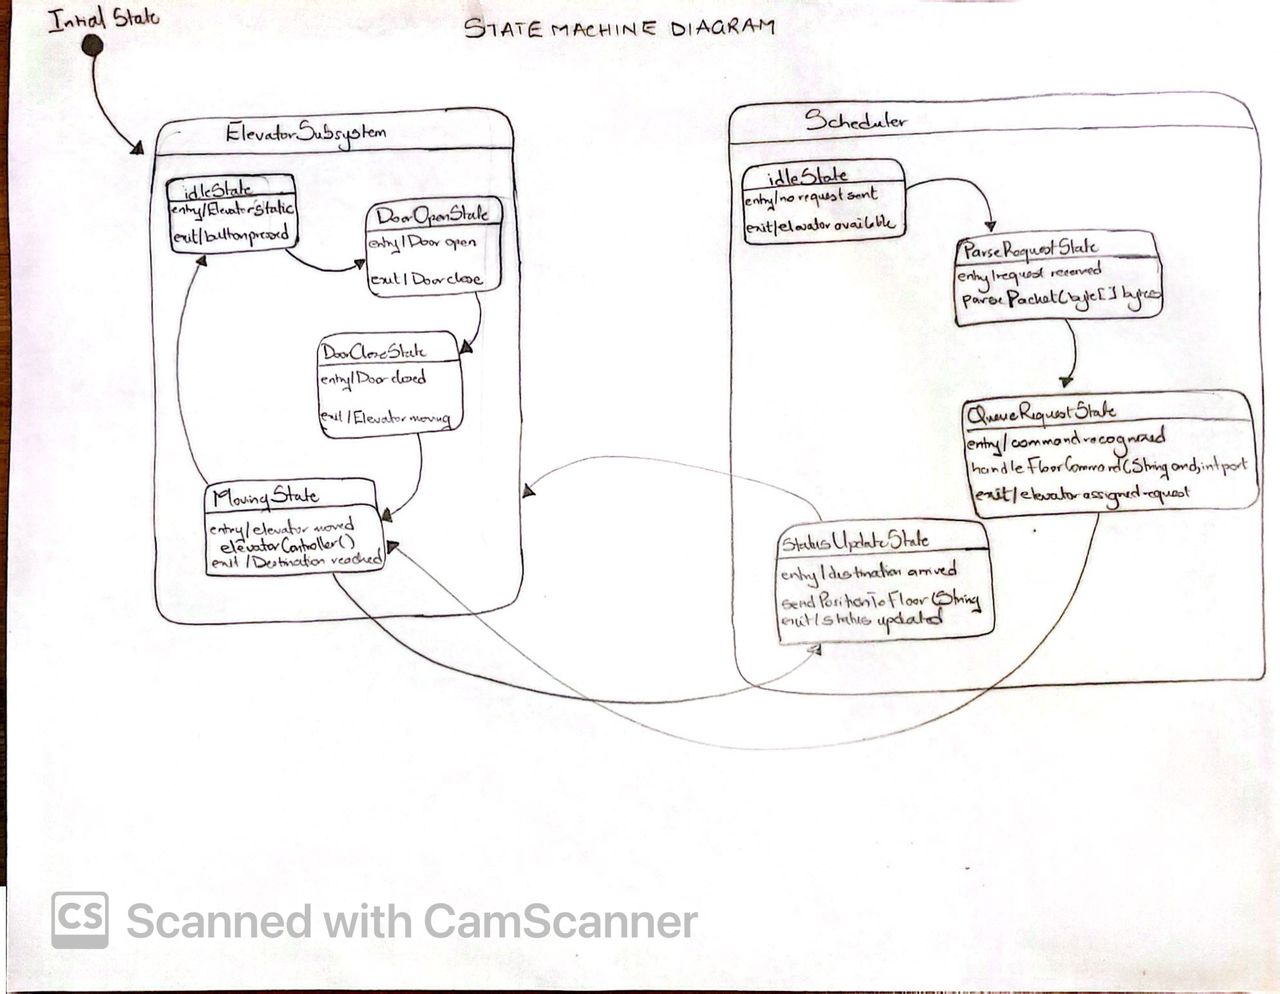 Initial State
STATE MACHINE DIAGRAM
ElevatorSubsystem
idleState
entry/Elevator Static
exit/button pressed
DoorOpenState
entry/Door open
exit/Door close
DoorCloseState
entry/Door closed
exit/Elevator moving
MovingState
entry/elevator moved
elevatorController()
exit/Destination reached
Scheduler
idleState
entry/no request sent
exit/elevator available
ParseRequestState
entry/request received
parsePacket(byte[] bytes
QueueRequestState
entry/command recognized
handleFloorCommand(String cmd, int port
exit/elevator assigned request
StatusUpdateState
entry/destination arrived
sendPositionToFloor(String
exit/status updated
CS Scanned with CamScanner